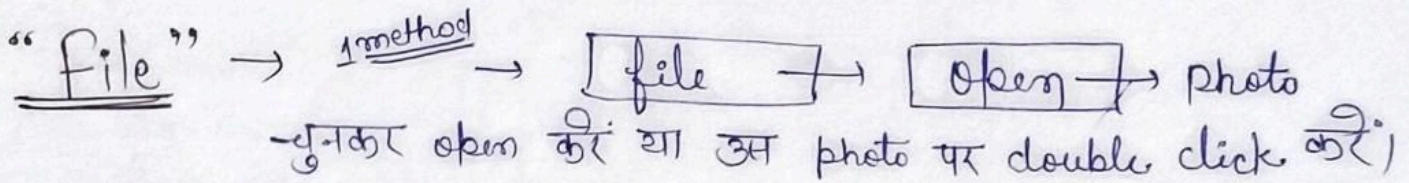 “File” → 1 method → file → open → photo
चुनकर open करें या उस photo पर double click करें।